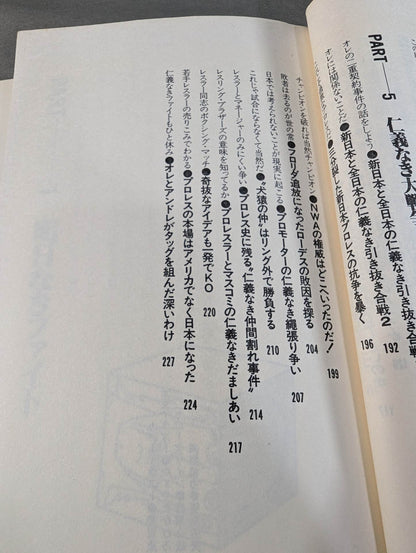 PART—5 仁義なき大
オレの二重契約事件の話をしよう●新日本と全日本の仁義なき引き抜き合戦 192
オレには関係ないことだ●新日本と全日本の仁義なき引き抜き合戦2 196
した新日本プロレスの抗争を暴く
チャンピオンを破れば当然チャンピオン●NWAの権威はどこへいったのだ! 199
敗者は去るのが世の常●フロリダ追放になったローデスの敗因を探る 204
日本では考えられないことが現実に起こる●プロモーターの仁義なき縄張り争い 207
これじゃ試合にならなくて当然だ●“犬猿の仲”はリング外で勝負する 210
レスラーとマネージャーのみにくい争い●プロレス史に残る“仁義なき仲間割れ事件” 214
レスリング・ブラザーズの意味を知ってるか●プロレスラーとマスコミの仁義なきだましあい 217
レスラー同志のボクシング・マッチ●奇抜なアイデアも一発でKO 220
若手レスラーの売りこみでわかる●プロレスの本場はアメリカでなく日本になった 224
仁義なきファイトもひと休み●オレとアンドレがタッグを組んだ深いわけ 227